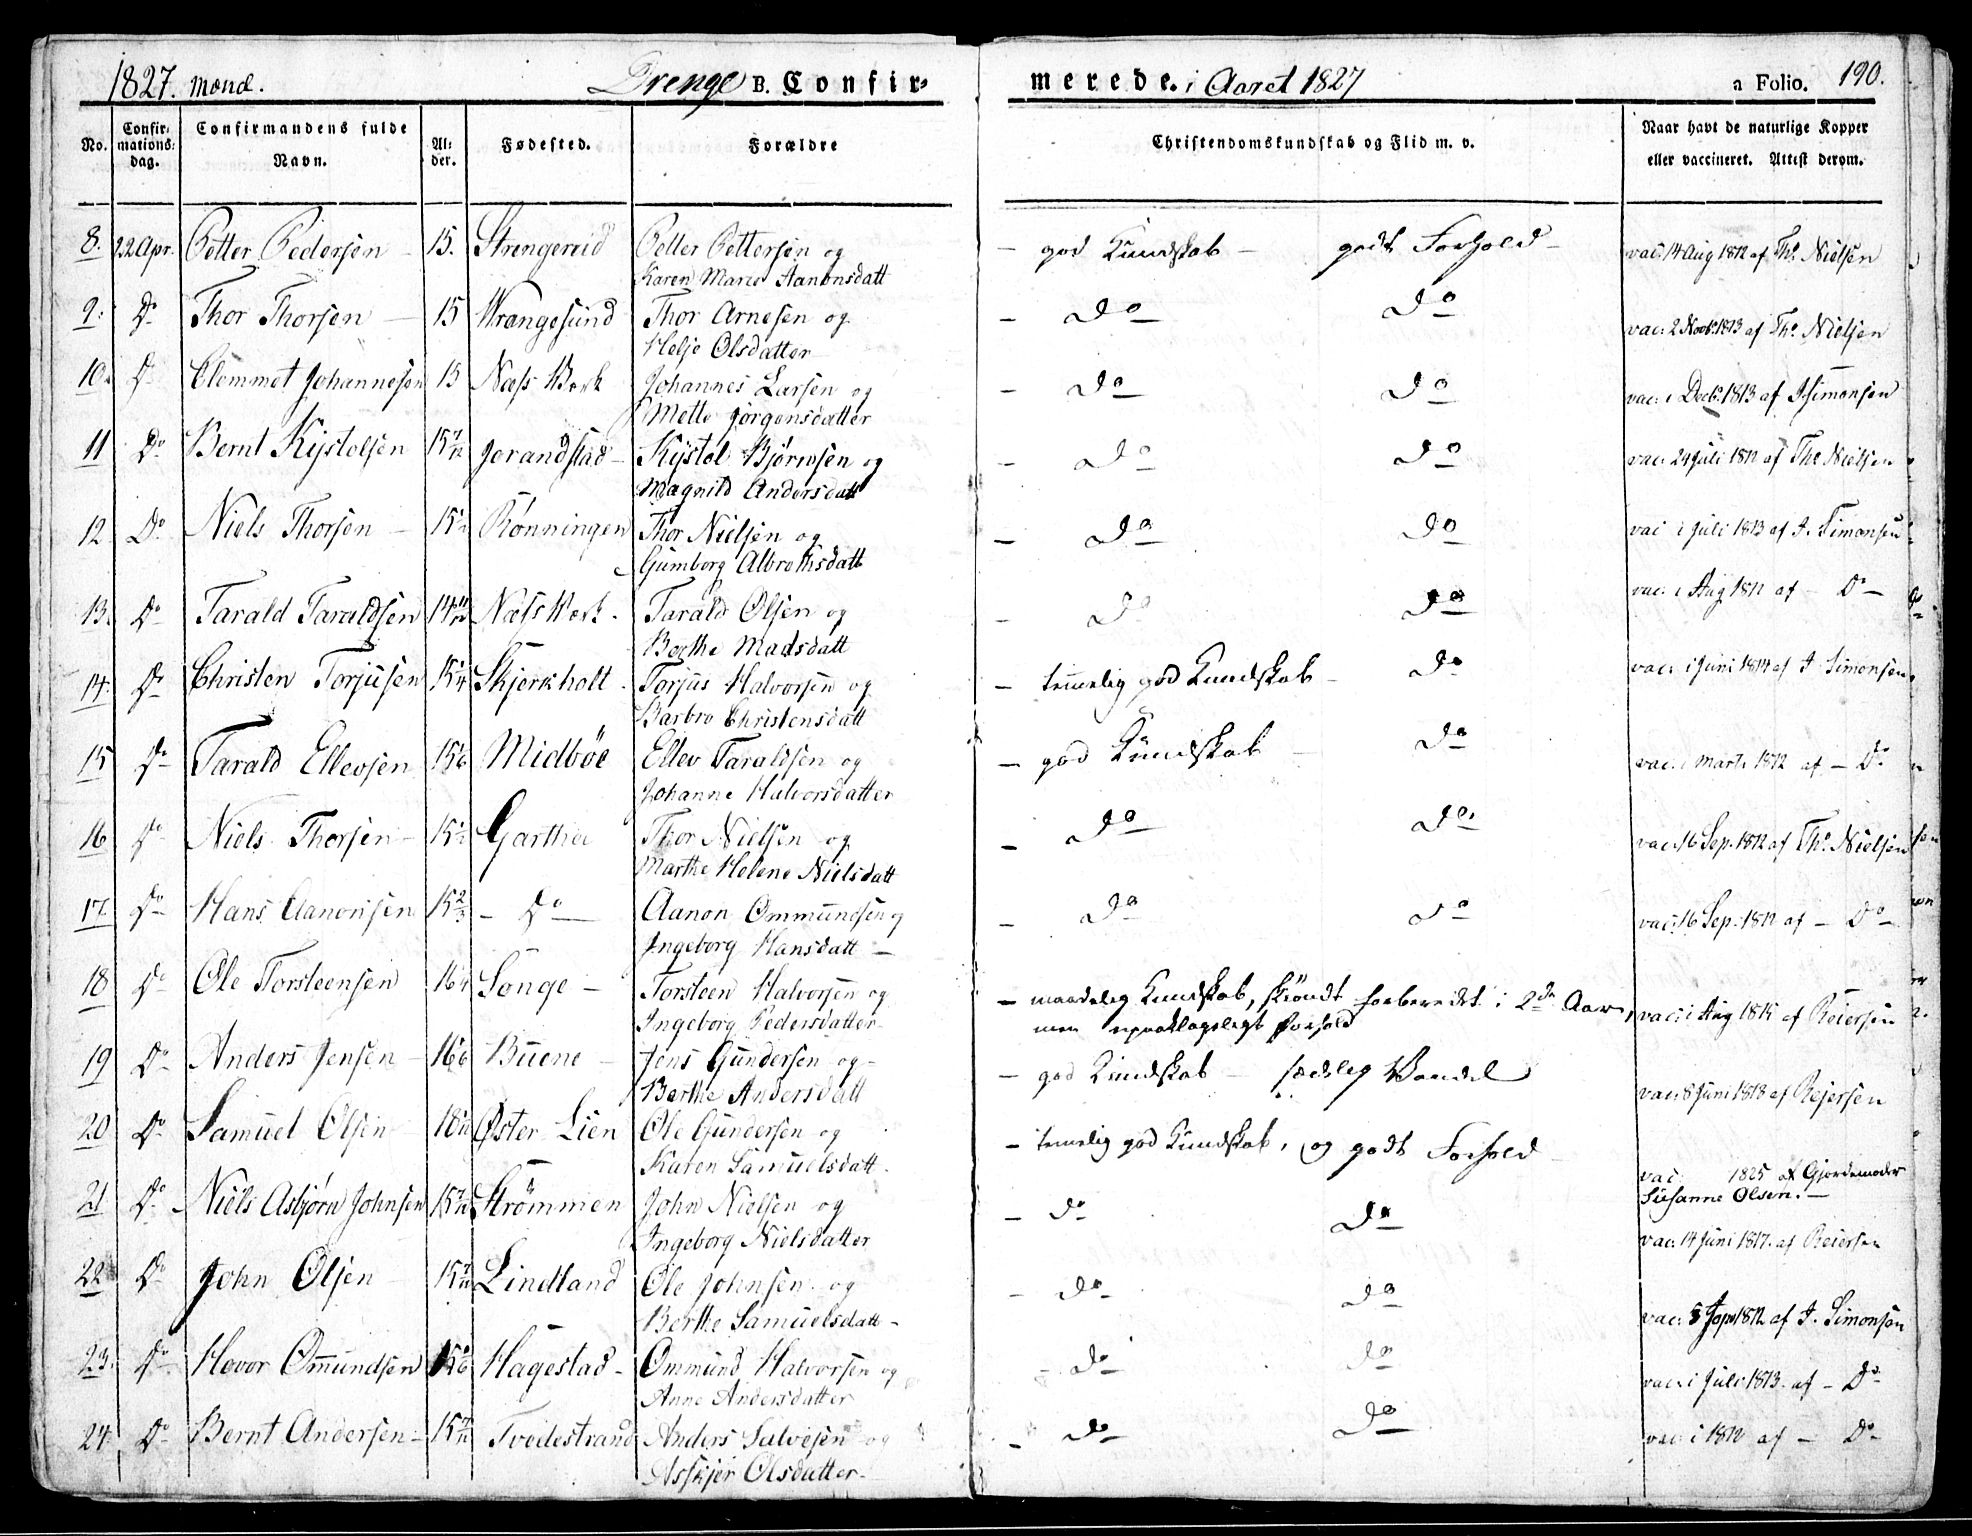 1827. Mænd. Drenge B. Confir-merede. i Aaret 1827 a Folio. 190.
No. Confirmations-dag. Confirmandens fulde Navn. Al-der. Fødested. Forældre Christendomskundskab og Flid m. v. Naar havt de naturlige Kopper eller vaccineret. Attest derom.
8. 22 Apr. Petter Pedersen 15. Strengereid Petter Pettersen og — god Kundskab — godt Forhold — vac: 14 Aug 1812 af Ths. Nielsen
Karen Marie Aanonsdatt
9. Do Thor Thorsen — 15 Wrangesund Thor Arnesen og — Do Do vac: 2 Novb: 1813 af Ths. Nielsen
Helje Olsdatter
10. Do Clemmet Johannesen 15 Næss Værk Johannes Larsen og — Do Do vac: i Decb: 1813 af J Simonsen
Mette Jørgensdatter
11 Do Bernt Kystolsen 15 7/12 Jorandstad — Kystol Bjørnsen og — Do Do vac: 24 Juli 1812 af Ths Nielsen
Magnild Andersdatt
12 Do Niels Thorsen — 15 1/2 Rønningen Thor Nielsen og — Do Do vac i Juli 1813 af J. Simonsen
Gumborg Albrethsdatt
13. Do Tarald Taraldsen 14 11/12 Næss Værk. Tarald Olsen og — Do Do vac: i Aug 1812 af — Do —
Berthe Madsdatt
14. Do Christen Torjusen 15 1/4 Skjerkholt. Torjus Halvorsen og — temmelig god Kundskab — Do vac: i Juni 1814 af J Simonsen
Barbro Christensdatt
15 Do Tarald Ellevsen 15 1/6 Midbøe Ellev Taraldsen og — god Kundskab — Do vac: i Marts 1812 af — Do
Johanne Halvorsdatter
16 Do Niels Thorsen — 15 1/2 Gartha Thor Nielsen og — Do Do. vac: 16 Sep. 1812 af Ths. Nielsen
Marthe Helene Nielsdatt
17. Do Hans Aanonsen 15 2/3 — Do — Aanon Ommundsen og — Do Do vac: 16 Sep. 1812 af — Do —
Ingeborg Hansdatt —
18 Do Ole Torsteensen 16 Songe — Torsteen Halvorsen og — maadelig Kundskab, skiøndt forberedt i 2de Aar, vac: i Aug 1815 af Reiersen
Ingeborg Pedersdatter men upaaklageligt Forhold
19 Do Anders Jensen — 16 Buene — Jens Gundersen og — — god Kundskab — sædelig Vandel vac: 8 Juni 1818 af Reiersen
Berthe Andersdatt
20 Do Samuel Olsen 18 Øster Lien Ole Gundersen og — temelig god Kundskab, og godt Forhold — vac: 1825 af Gjordemoder
Karen Samuelsdatt. Susanne Olsen. —
21 Do Niels Asbjørn Johnsen 15 7/12 Strømmen John Nielsen og — Do Do vac: 14 Juni 1817. af Reiersen
Ingeborg Nielsdatter
22 Do John Olsen 15 7/12 Lindland Ole Johnsen og — Do Do vac: 8 1812 af J. Simonsen
Berthe Samuelsdatt —
23. Do Hovor Omundsen 15 Hagestad — Ommund Halvorsen og — Do Do vac: i Juli 1813. af — Do
Anne Andersdatter
24 Do Bernt Andersen — 15 7/12 Tvedestrand Anders Salvesen og — Do Do vac: i 1812 af — Do
Asskjer Olsdatter